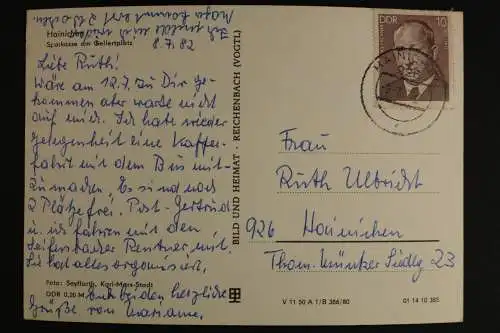 Hainichen
Sparkasse am Gellertplatz
8.7.82
Liebe Ruth!
wäre am 12.7. zu Dir ge-
kommen aber warte nicht
auf mich. Ich habe wieder
Gelegenheit eine Kaffee-
fahrt mit dem Bus mit-
zumachen. Es sind noch
2 Plätze frei. Gertrud
u. ich fahren mit den
Rentner mit.
Sie hat alles organisiert.
Foto: Seyffarth, Karl-Marx-Stadt
DDR 0,20 M
Euch beiden herzliche
Grüße von Marianne
BILD UND HEIMAT · REICHENBACH (VOGTL)
DDR 10
Frau
Ruth Ulbricht
926 Hainichen
Thom.-Müntzer Siedlg 23
V 11 50 A 1/B 386/80
01 14 10 385